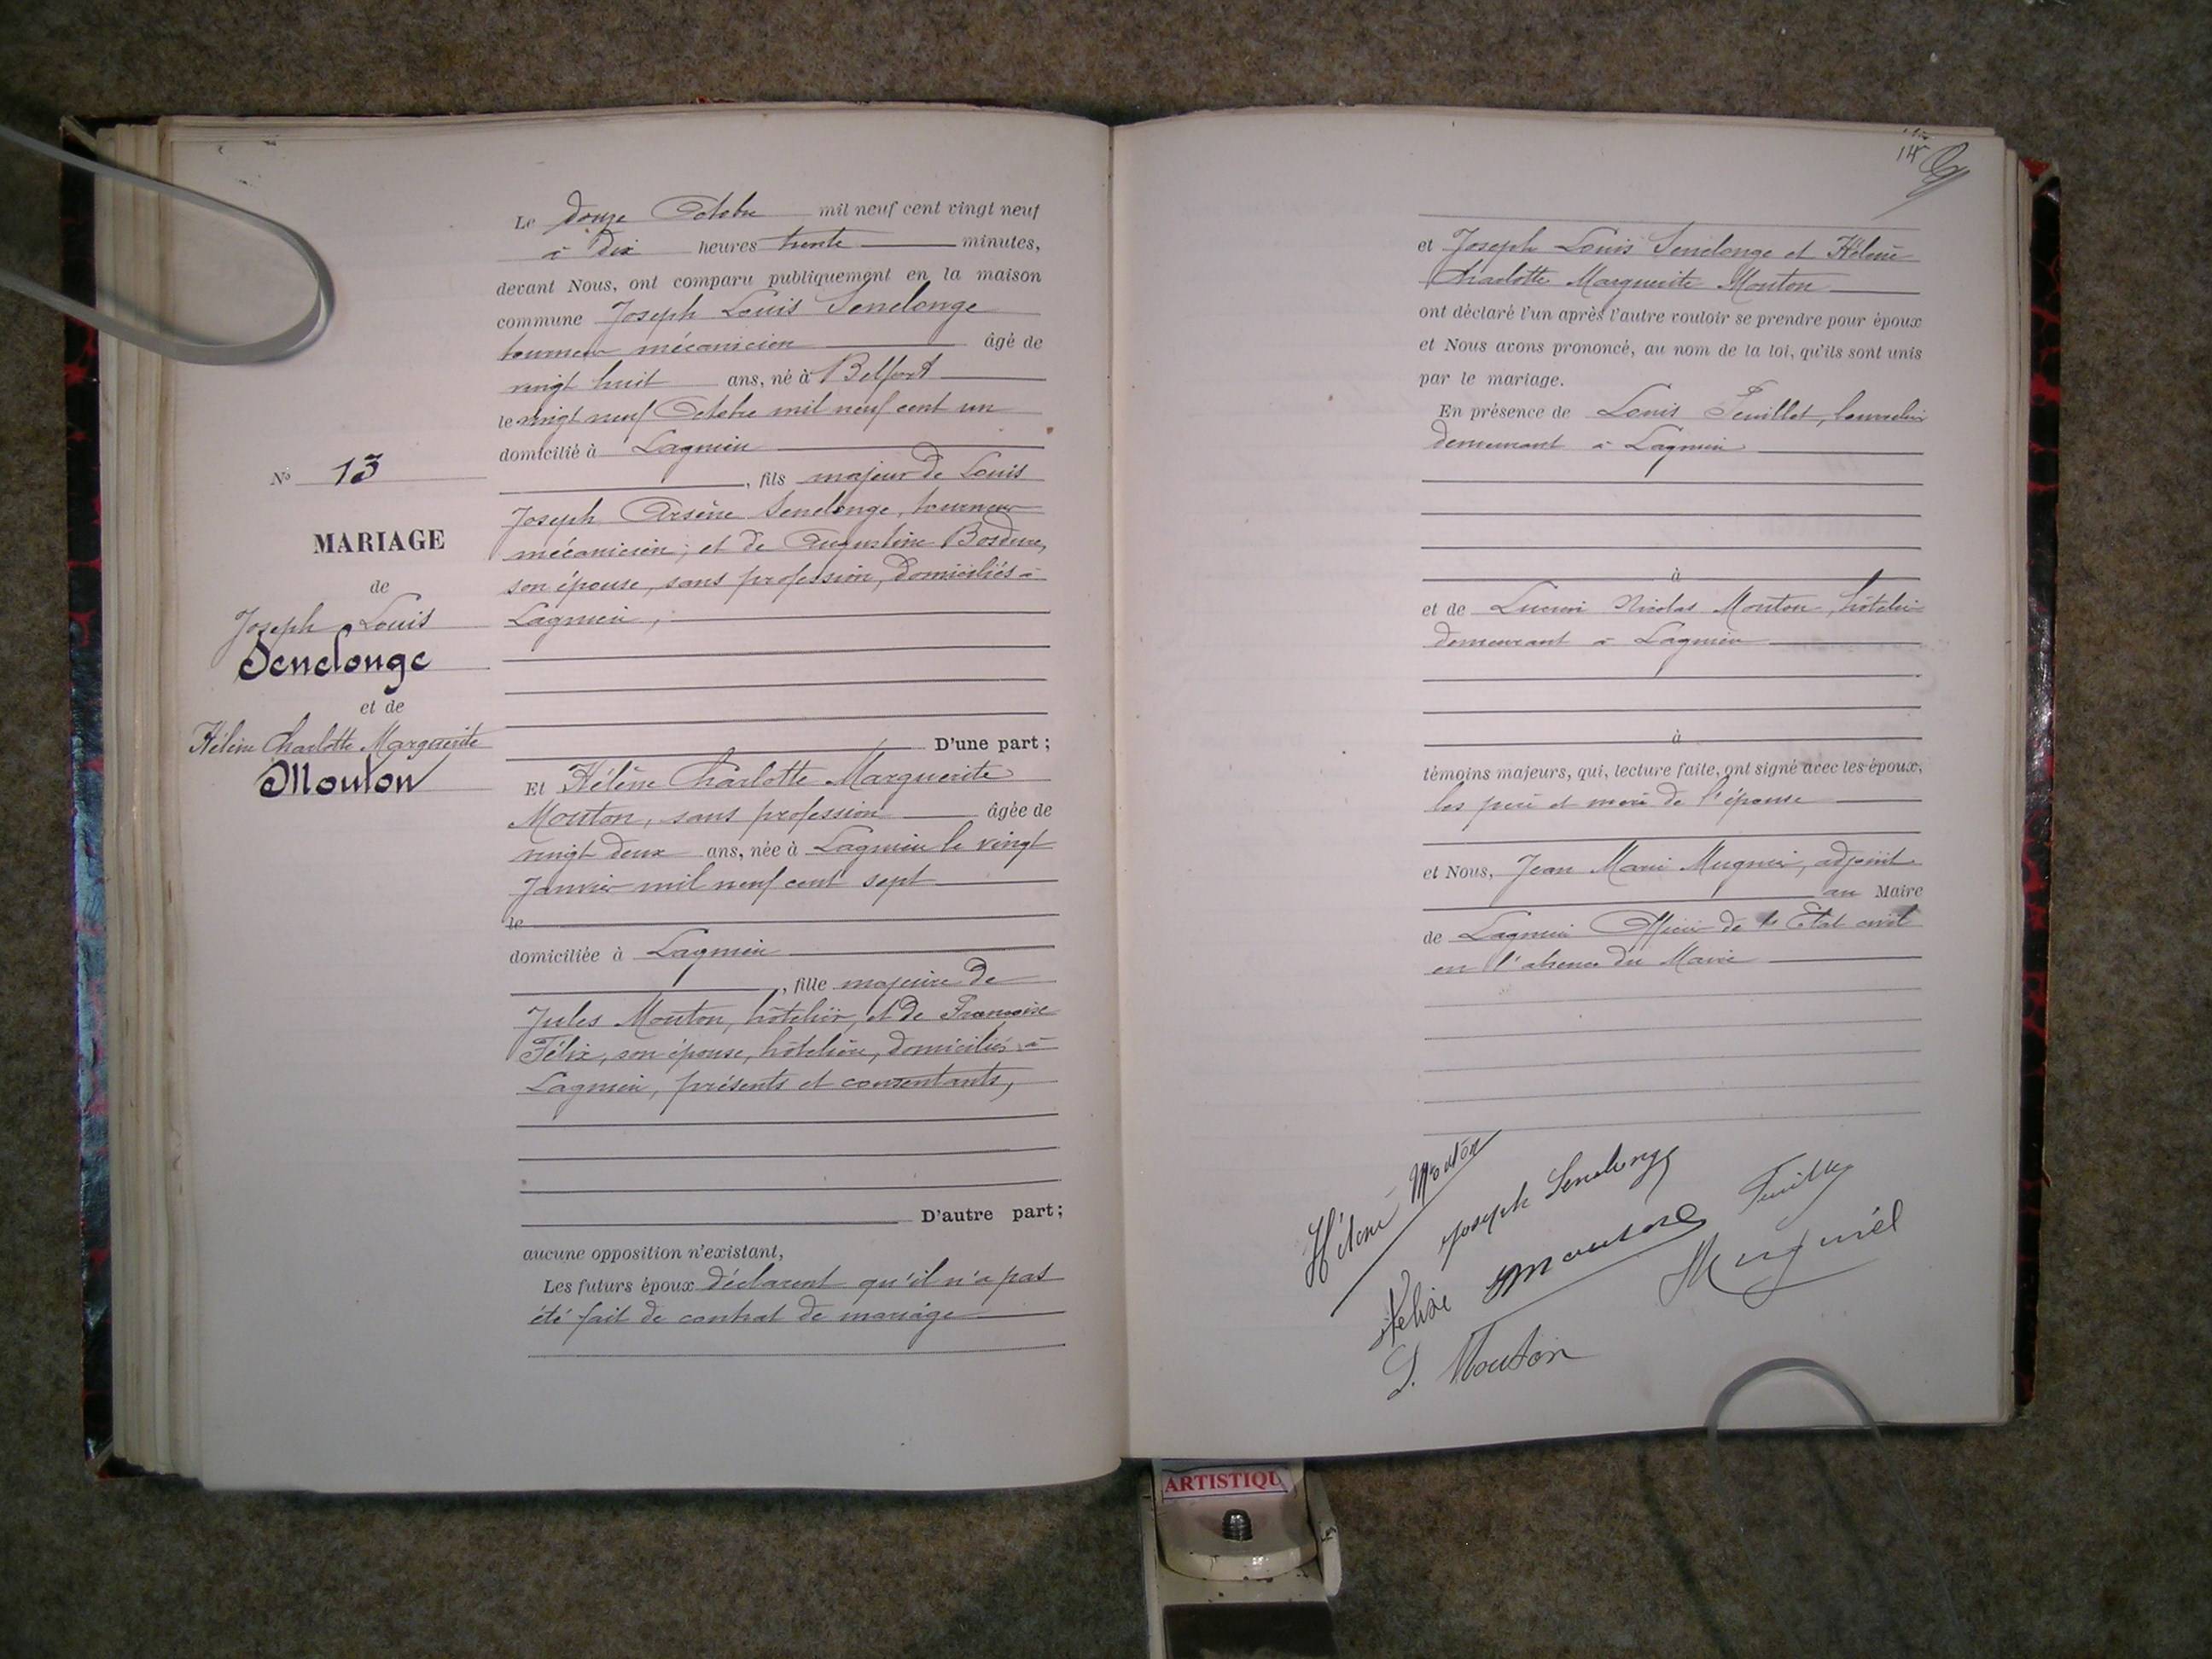 N° 13
MARIAGE
de
Joseph Louis
Senelonge
et de
Hélène Charlotte Marguerite
Mouton
Le douze Octobre mil neuf cent vingt neuf
à dix heures trente minutes,
devant Nous, ont comparu publiquement en la maison
commune Joseph Louis Senelonge
tourneur mécanicien âgé de
vingt huit ans, né à Belfort
le vingt neuf Octobre mil neuf cent un
domicilié à Lagnieu
, fils majeur de Louis
Joseph Arsène Senelonge, tourneur
mécanicien, et de Augustine
son épouse, sans profession, domiciliés à
Lagnieu,
D'une part;
Et Hélène Charlotte Marguerite
Mouton, sans profession âgée de
vingt deux ans, née à Lagnieu le vingt
Janvier mil neuf cent sept
le
domiciliée à Lagnieu
, fille majeure de
Jules Mouton, hôtelier, et de Françoise
Félix, son épouse, hôtelière, domiciliés à
Lagnieu, présents et consentants,
D'autre part;
aucune opposition n'existant,
Les futurs époux déclarent qu'il n'a pas
été fait de contrat de mariage
et Joseph Louis Senelonge et Hélène
Charlotte Marguerite Mouton
ont déclaré l'un après l'autre vouloir se prendre pour époux
et Nous avons prononcé, au nom de la loi, qu'ils sont unis
par le mariage.
En présence de Louis Feuillet,
demeurant à Lagnieu
à
et de Lucien Nicolas Mouton, hôtelier
demeurant à Lagnieu
à
témoins majeurs, qui, lecture faite, ont signé avec les époux,
les père et mère de l'épouse
et Nous, Jean Marie Mugnier, adjoint
au Maire
de Lagnieu Officier de l'Etat civil
en l'absence du Maire
Hélène Mouton
Joseph Senelonge
Félix Mouton
L. Mouton
ARTISTIQU